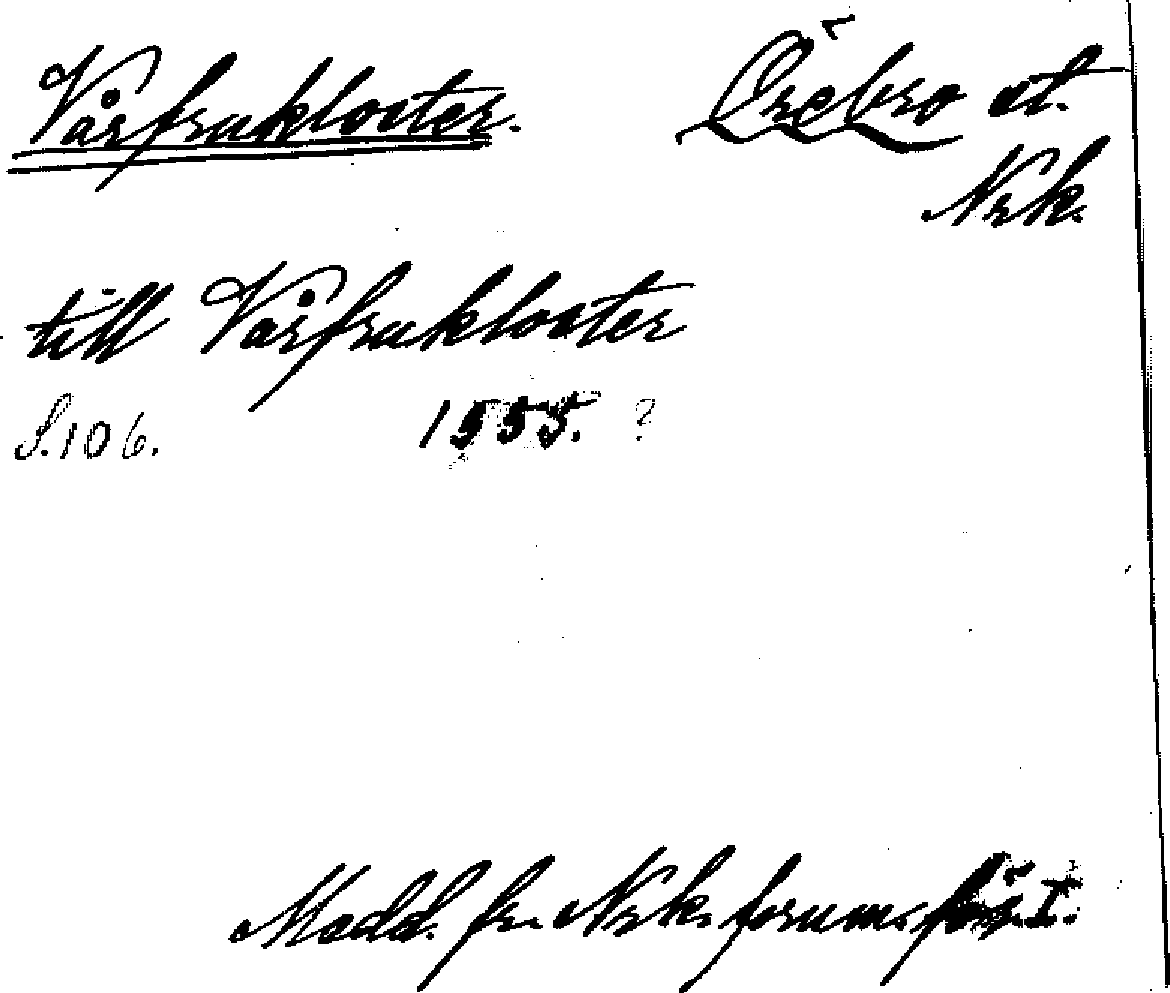 Vårfrukloster. Örebro st.
Nrk.
till Vårfrukloster
S. 106. 1555. ?
Medd. fr. Nrk. fornm. för. I.